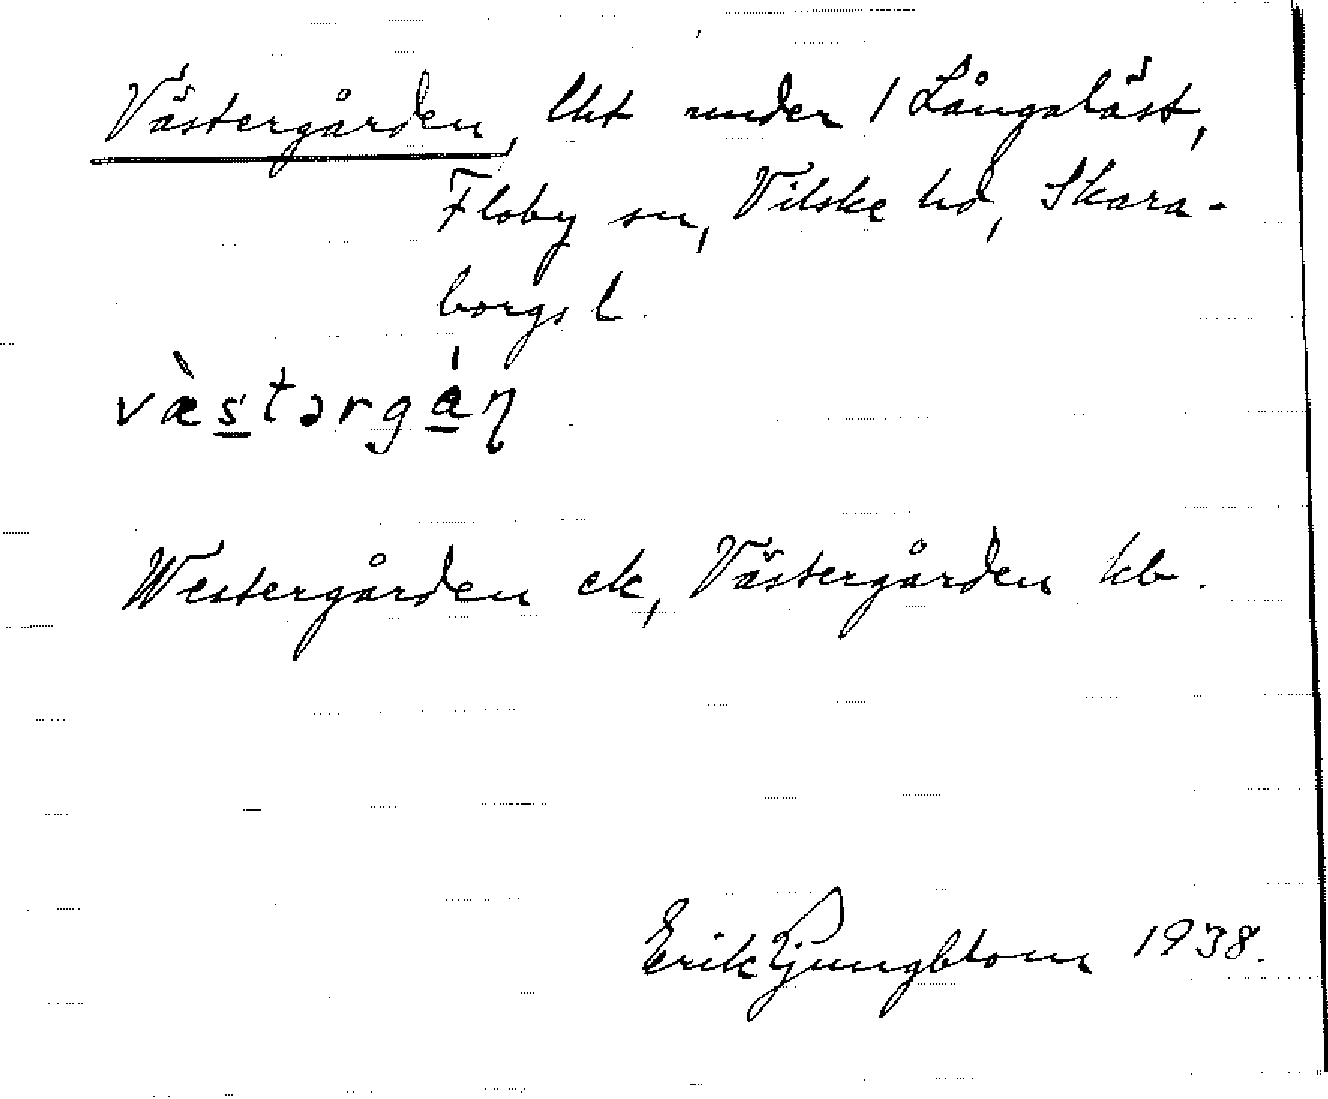 Västergården, lht under 1 Långaläst,
Floby sn, Vilske hd, Skara-
borgs l.
væ̀stərgán
Westergården ek, Västergården kb.
Erik Ljungblom 1938.